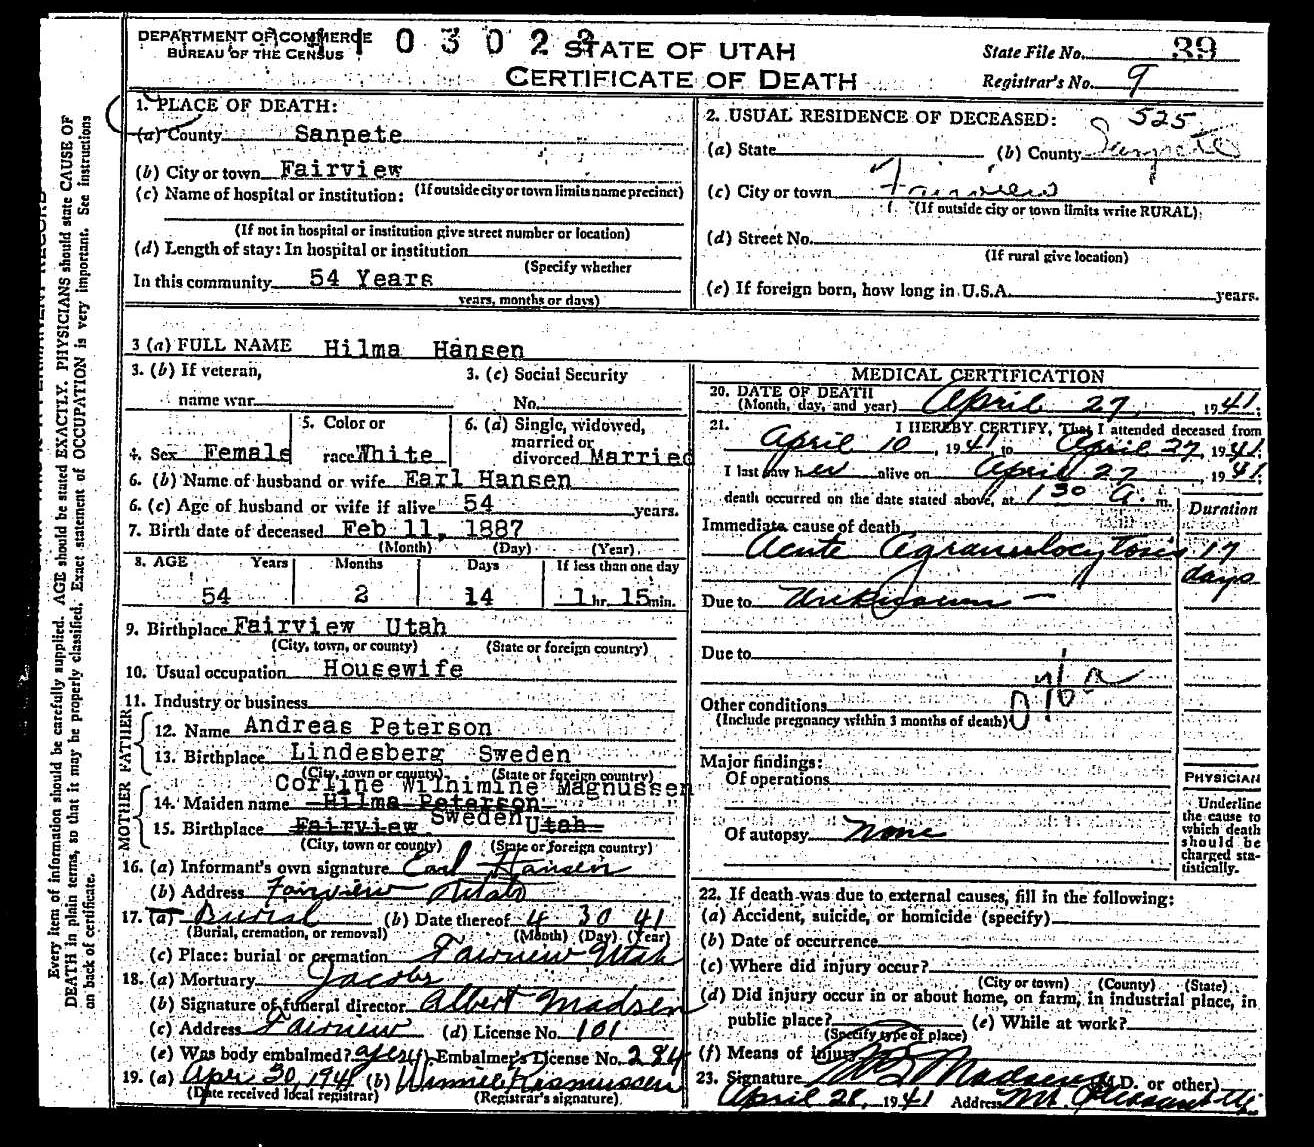 DEPARTMENT OF COMMERCE
BUREAU OF THE CENSUS
STATE OF UTAH
CERTIFICATE OF DEATH
State File No. 39
Registrar's No. 9
1. PLACE OF DEATH:
(a) County Sanpete
(b) City or town Fairview
(If outside city or town limits name precinct)
(c) Name of hospital or institution:
(If not in hospital or institution give street number or location)
(d) Length of stay: In hospital or institution
(Specify whether
In this community 54 Years
years, months or days)
2. USUAL RESIDENCE OF DECEASED: 525
(a) State (b) County Sanpete
(c) City or town Fairview
(If outside city or town limits write RURAL)
(d) Street No.
(If rural give location)
(e) If foreign born, how long in U.S.A. years.
3 (a) FULL NAME Hilma Hansen
3. (b) If veteran,
name war
3. (c) Social Security
No.
4. Sex Female
5. Color or
race White
6. (a) Single, widowed,
married or
divorced Married
6. (b) Name of husband or wife Earl Hansen
6. (c) Age of husband or wife if alive 54 years.
7. Birth date of deceased Feb 11, 1887
(Month) (Day) (Year)
8. AGE Years Months Days If less than one day
54 2 14 1 hr. 15 min.
9. Birthplace Fairview Utah
(City, town, or county) (State or foreign country)
10. Usual occupation Housewife
11. Industry or business
FATHER
12. Name Andreas Peterson
13. Birthplace Lindesberg Sweden
(City, town or county) (State or foreign country)
MOTHER
Corline Wilhimine Magnussen
14. Maiden name Hilma Peterson
15. Birthplace Fairview Sweden Utah
(City, town or county) (State or foreign country)
16. (a) Informant's own signature Earl Hansen
(b) Address Fairview Utah
17. (a) Burial (b) Date thereof 4 30 41
(Burial, cremation, or removal) (Month) (Day) (Year)
(c) Place: burial or cremation Fairview Utah
18. (a) Mortuary Jacobs
(b) Signature of funeral director Albert Madsen
(c) Address Fairview (d) License No. 101
(e) Was body embalmed? yes (f) Embalmer's License No. 284
19. (a) Apr 30, 1941 (b) Winnie Rasmussen
(Date received local registrar) (Registrar's signature)
MEDICAL CERTIFICATION
20. DATE OF DEATH
(Month, day, and year) April 27, 1941;
21. I HEREBY CERTIFY, That I attended deceased from
April 10, 1941 to April 27, 1941.
I last saw her alive on April 27 1941;
death occurred on the date stated above, at 1 30 A. m.
Duration
Immediate cause of death
Acute Agranulocytosis 17
days
Due to Unknown
Due to
Other conditions
(Include pregnancy within 3 months of death)
Major findings:
Of operations
Of autopsy none
PHYSICIAN
Underline
the cause to
which death
should be
charged sta-
tistically.
22. If death was due to external causes, fill in the following:
(a) Accident, suicide, or homicide (specify)
(b) Date of occurrence
(c) Where did injury occur?
(City or town) (County) (State)
(d) Did injury occur in or about home, on farm, in industrial place, in
public place? (e) While at work?
(Specify type of place)
(f) Means of injury
23. Signature Madsen (M.D. or other)
April 28, 1941 Address Mt. Pleasant
Every item of information should be carefully supplied. AGE should be stated EXACTLY. PHYSICIANS should state CAUSE OF
DEATH in plain terms, so that it may be properly classified. Exact statement of OCCUPATION is very important. See instructions
on back of certificate.